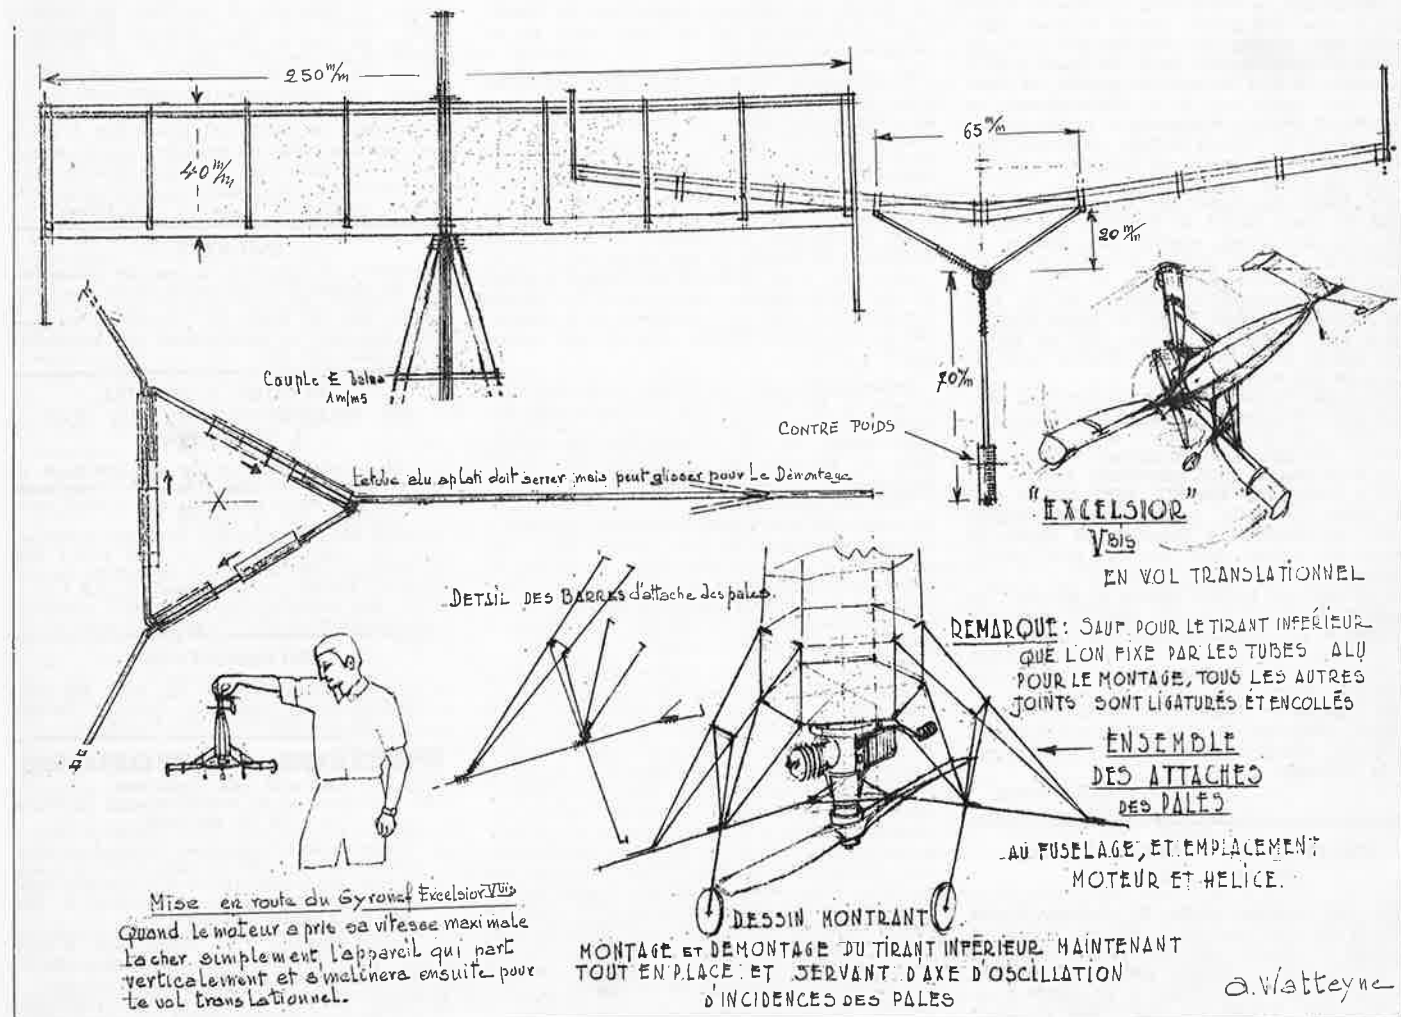 250 m/m
40 m/m
65 m/m
20 m/m
70 m/m
Couple E balsa
1m/m5
CONTRE POIDS
Le tube alu aplati doit serrer mais peut glisser pour Le Démontage
"EXCELSIOR"
V Bis
EN VOL TRANSLATIONNEL
DETAIL DES BARRES d'attache des pales.
REMARQUE: SAUF POUR LE TIRANT INFÉRIEUR
QUE L'ON FIXE PAR LES TUBES ALU
POUR LE MONTAGE, TOUS LES AUTRES
JOINTS SONT LIGATURÉS ET ENCOLLÉS
ENSEMBLE
DES ATTACHES
DES PALES
AU FUSELAGE, ET EMPLACEMENT
MOTEUR ET HELICE.
Mise en route du Gyronef Excelsior V Bis
Quand le moteur a pris sa vitesse maximale
Lacher simplement l'appareil qui part
verticalement et s'inclinera ensuite pour
le vol translationnel.
DESSIN MONTRANT
MONTAGE ET DEMONTAGE DU TIRANT INFÉRIEUR MAINTENANT
TOUT EN PLACE ET SERVANT D'AXE D'OSCILLATION
D'INCIDENCES DES PALES
a. Watteyne